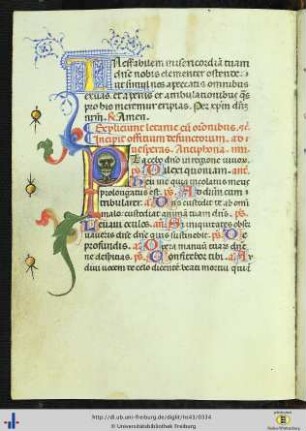 Ineffabilem misericordiā tuam
dn̄e nobis clementer ostende.
ut simul nos a peccatis omnibus
exuas. et a penis et ambulationibus q̄s
pro his meremur eripias. Per xp̄m dn̄m
nr̄m. R. Amen.
Expliciunt letanie cū orōnibus. &c.
Incipit officium defunctorum. ad
vesperas. Antiphona.
Placebo dn̄o in regione vivor.
ps. Dilexi quoniam. anť.
Heu me quia incolatus meus
prolongatus est. ps. Ad dn̄m cum t
tribularer. a. Dn̄s custodit te ab om̄i
malo: custodiat animā tuam dn̄s. ps.
Levavi oculos. añ. Si iniquitates obser
vaveris dn̄e dn̄e quis sustinebit. ps. De
profundis. a. Opera manuū tuar. dn̄
ne despicias. ps. Confitebor tibi. a. Au
divi vocem de celo dicentē beati mortui qui ī
http://dl.ub.uni-freiburg.de/diglit/hs43/0334
© Universitätsbibliothek Freiburg